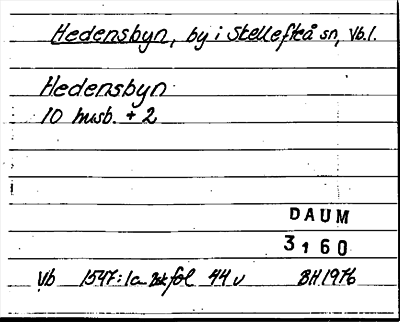 Hedensbyn, by i Skellefteå sn, Vb.l.
Hedensbyn
10 husb. + 2
DAUM
3160
Vb 1547:1a fol 44 v BH 1976